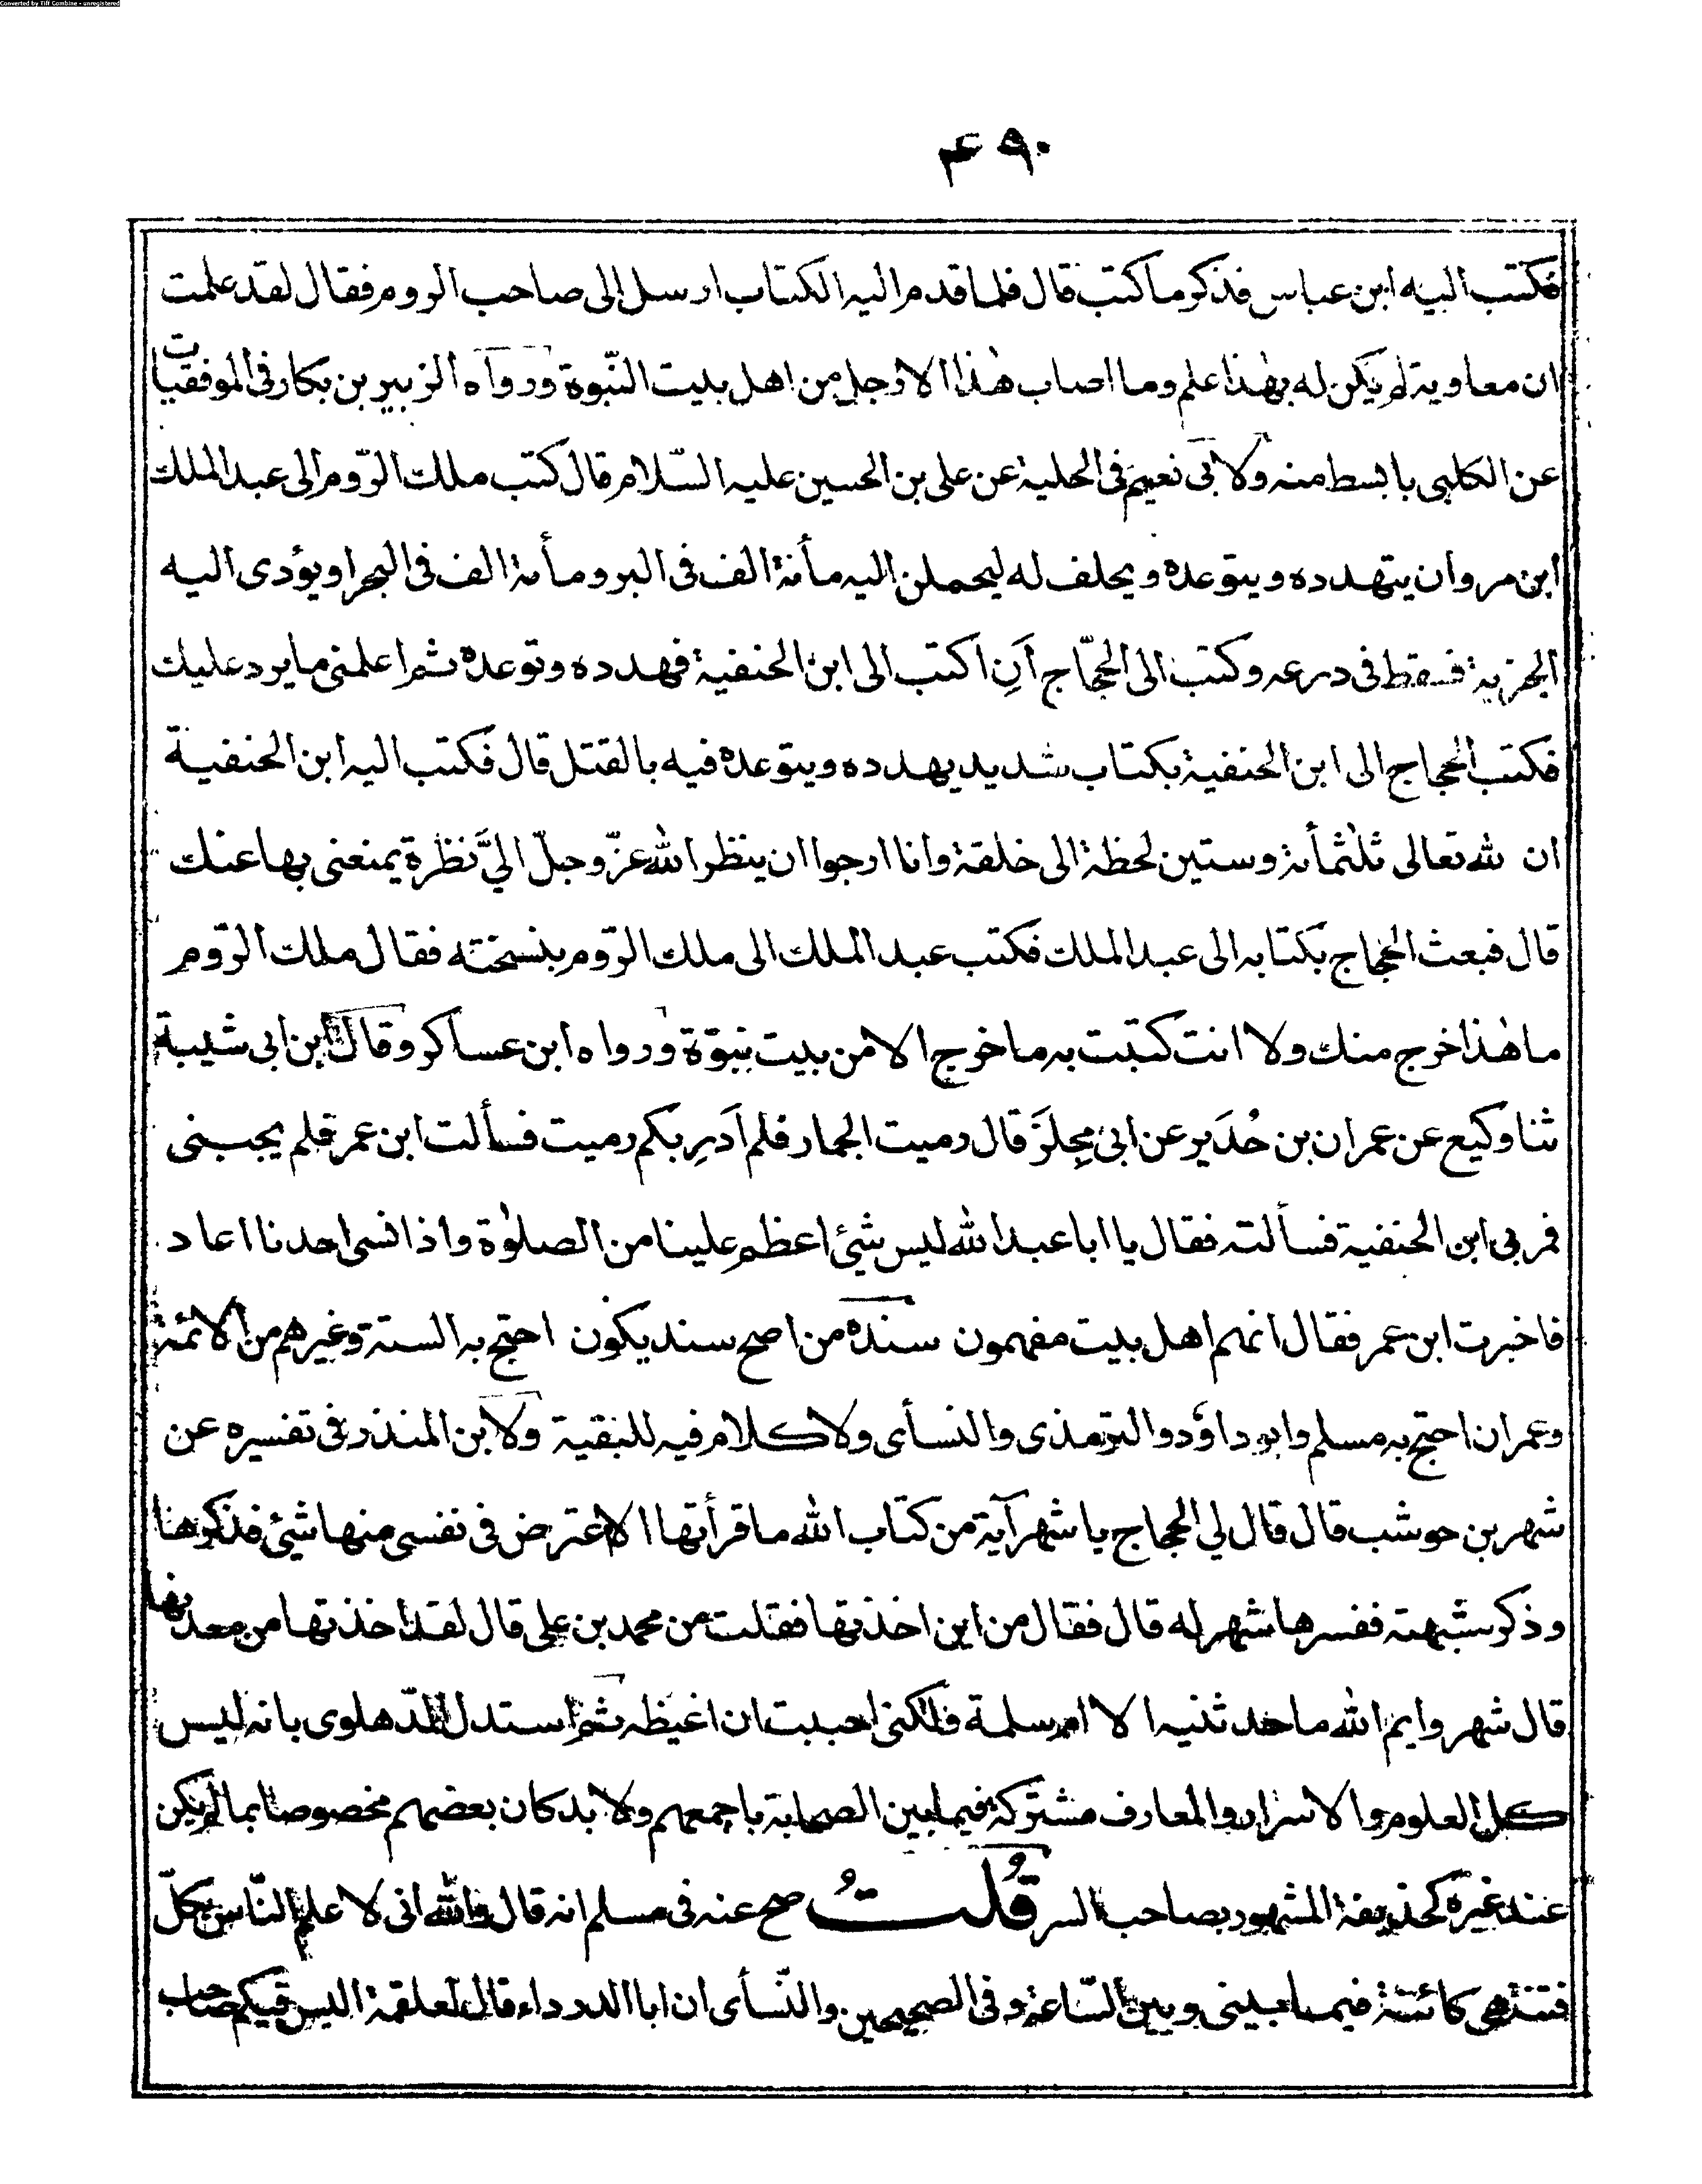 Converted by Tiff Combine - unregistered
٤٩٠
فكتب اليه ابن عباس فذكر ما كتب قال فلما قدم اليه الكتاب ارسل الى صاحب الروم فقال لقد علمت
ان معاوية لم يكن له بهٰذا علم وما اصاب هٰذا الا رجل من اهل بيت النّبوة ورواه الزبير بن بكار فى الموفقيات
عن الكلبى بابسط منه ولابى نعيم فى الحلية عن على بن الحسين عليه السّلام قال كتب ملك الرّوم الى عبد الملك
ابن مروان يتهدده ويتوعده ويحلف له ليحملن اليه مأئة الف فى البر ومأئة الف فى البحر او يؤدى اليه
الجزية فسقط فى درعه وكتب الى الحجّاج اَنِ اكتب الى ابن الحنفية فهدده وتوعده ثم اعلمنى ما يرد عليك
فكتب الحجاج الى ابن الحنفية بكتاب شديد يهدده ويتوعده فيه بالقتل قال فكتب اليه ابن الحنفية
ان لله تعالى ثلٰثمأئة وستين لحظة الى خلقة وانا ارجوا ان ينظر الله عزّ وجلّ اليَّ نظرة يمنعنى بها عنك
قال فبعث الحجاج بكتابه الى عبد الملك فكتب عبد الملك الى ملك الرّوم بنسخته فقال ملك الرّوم
ما هٰذا خرج منك ولا انت كتبت به ما خرج الا من بيت نبوّة ورواه ابن عساكر وقال ابن ابى شيبة
ثنا وكيع عن عمران بن حُدَير عن ابى مِجلَز قال رميت الجمار فلم اَدرِ بكم رميت فسألت ابن عمر فلم يجبنى
فمر بى ابن الحنفية فسألته فقال يا ابا عبد الله ليس شيئ اعظم علينا من الصلوٰة واذا نسى احدنا اعاد
فاخبرت ابن عمر فقال انهم اهل بيت مفهمون سنده من اصح سند يكون احتج به الستة وغيرهم من الائمة
وعمران احتج به مسلم وابو داؤد والترمذى والنسأى ولا كلام فيه للبقية ولابن المنذر فى تفسيره عن
شهر بن حوشب قال قال لي الحجاج يا شهر آية من كتاب الله ما قرأتها الا اعترض فى نفسى منها شيئ فذكرها
وذكر شبهته ففسرها شهر له قال فقال من اين اخذتها فقلت من محمد بن على قال لقد اخذتها من معدنها
قال شهر وايم الله ما حدثنيه الا ام سلمة ولكنى احببت ان اغيظه ثم استدل الدّهلوى بانه ليس
كل العلوم والاسرار والمعارف مشتركة فيما بين الصحابة باجمعهم ولا بد كان بعضهم مخصوصا بما لم يكن
عند غيره كحذيفة المشهور بصاحب السر قُلتُ صح عنه فى مسلم انه قال والله انى لاعلم النّاس بكلّ
فتنة هى كائنة فيما بينى وبين السّاعة وفى الصحيحين والنّسأى ان ابا الدرداء قال لعلقمة اليس فيكم صاحب